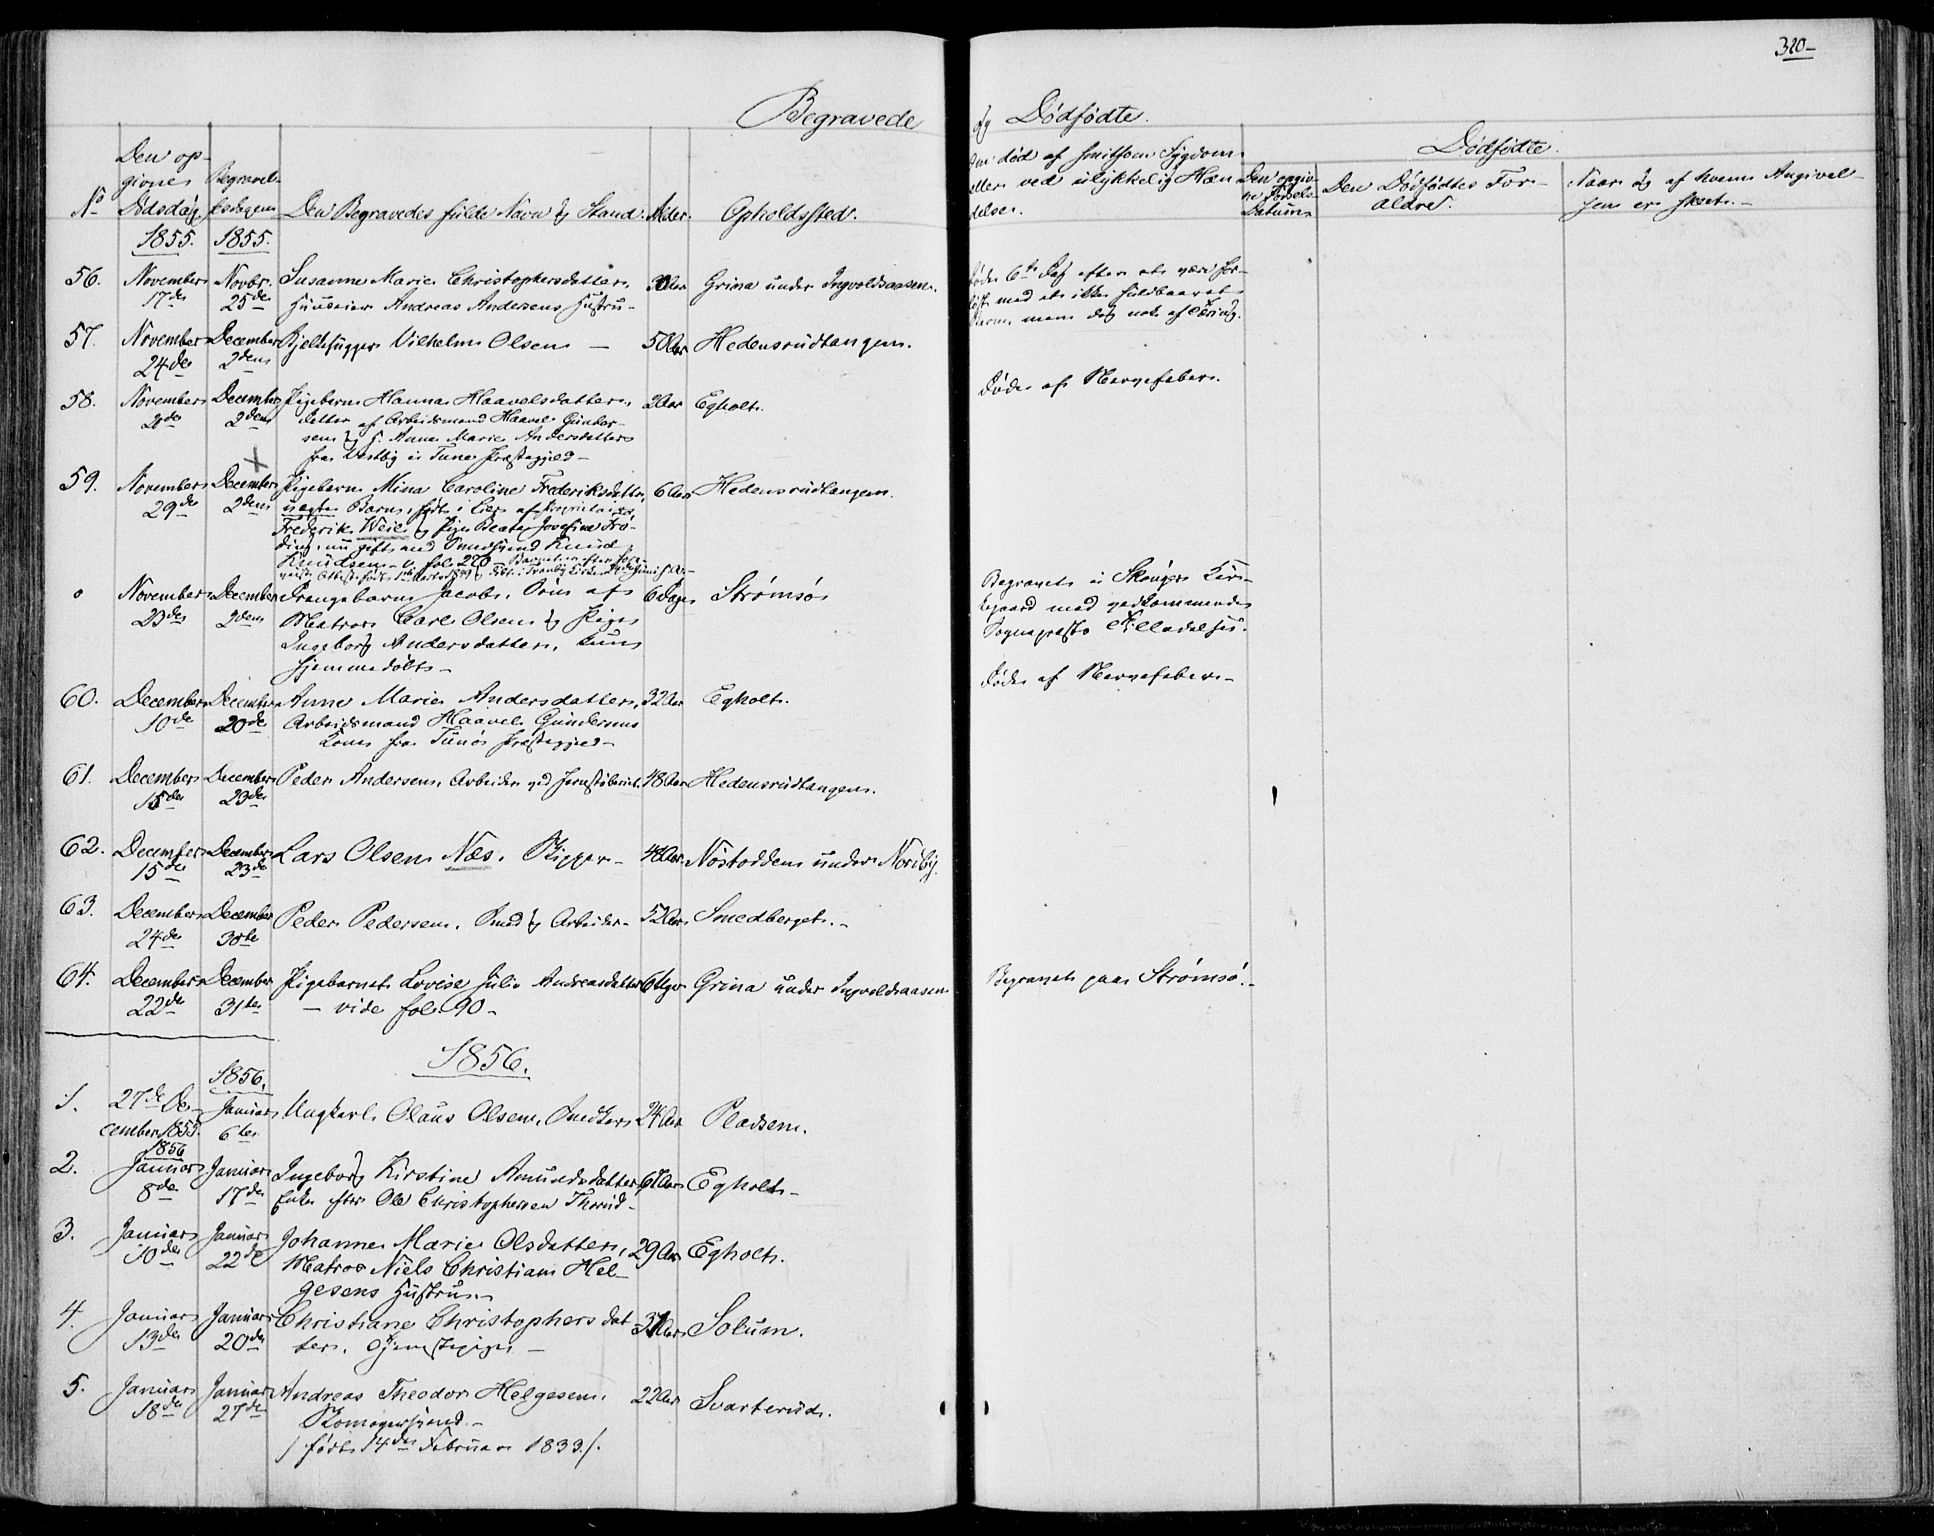 320-
Begravede og Dødfødte.
No
Den opgivne Dødsdag.
Begravelsesdagen
Den Begravedes fulde Navn og Stand.
Alder.
Opholdssted.
Om død af smitsom Sygdom
eller ved ulykkelig Hændelse.
Dødfødte.
Den opgivne Fødsels-Datum
Den Dødfødtes Forældre.
Naar og af hvem Angivelsen er skeet.
1855. 1855.
56. November 17de Novbr. 25de Susanne Marie Christophersdatter, 30 Aar Grina under Ingvoldsaasen.
Huuseier Andreas Andersens Hustru-
Døde 6te Dag efter at være forløst med et ikke fuldbaaret Barn, men dog nok af Tæring.
57. November 24de December 2den Vilhelm Olsen - 50 Aar Hedensrudtangen.
58. November 2de December 2den Pigebarn Hanna Haavelsdatter, 2 Aar Egholt.
Datter af Arbeidsmand Haavel Gundersen og H. Anne Marie Andersdatter
fra Vestby i Tune Præstegjeld-
Døde af Nervefeber.
59. November 29de December 2den Pigebarn Mina Caroline Frederiksdatter, 6 Aar Hedensrudtangen.
uægte Barn, født i Lier af Proprietair
Frederik Weil og Pige Beate Josefine
nu gift med Knud
Knudsen - v. fol 220
o November 23de December 2den Drengebarn Jacob, Søn af 6 Dage Strømsø
Matros Carl Olsen og Pige
Ingeborg Andersdatter, kun
hjemmedøbt-
Begravet i Skouger Kirkegaard med vedkommende
Sogneprests Tilladelse.
60. December 10de December 20de Anne Marie Andersdatter, 32 Aar Egholt.
Arbeidsmand Haavel Gundersens
Kone fra Tunø Præstegjeld-
Døde af Nervefeber-
61. December 15de December 23de Peder Andersen, Arbeider ved Jernstøberiet. 48 Aar Hedensrudtangen.
62. December 15de December 23de Lars Olsen Næs. Skipper- 48 Aar Nøstodden under Nordby.
63. December 24de December 30te Peder Pedersen. Smed og Arbeider- 52 Aar Smedberget.-
64. December 22de December 31te Pigebarnet Lovise Julie Andreasdatter 6 Uger Grina under Ingvoldsaasen
- vide fol. 90-
Begravet paa Strømsø.-
1856.
1856.
1. 27de December 1855. Januar 6te Ungkarl Olaus Olsen, Snedker 24 Aar Pladsen.
1856
2. Januar 8de Januar 17de Ingeborg Kirstine Amundsdatter, 67 Aar Egholt-
Enke efter Ole Christophersen Thorud-
3. Januar 10de Januar 22de Johanne Marie Olsdatter, 29 Aar Egholt.
Matros Niels Christian Hel-
gesens Hustru.-
4. Januar 13de Januar 20de Christiane Christophersdat- 31 Aar Solum.
ter, Tjenestepige -
5. Januar 18de Januar 27de Andreas Theodor Helgesen, 22 Aar Svarterud.
Skomagersvend.-
/ født 14de Februar 1833./.